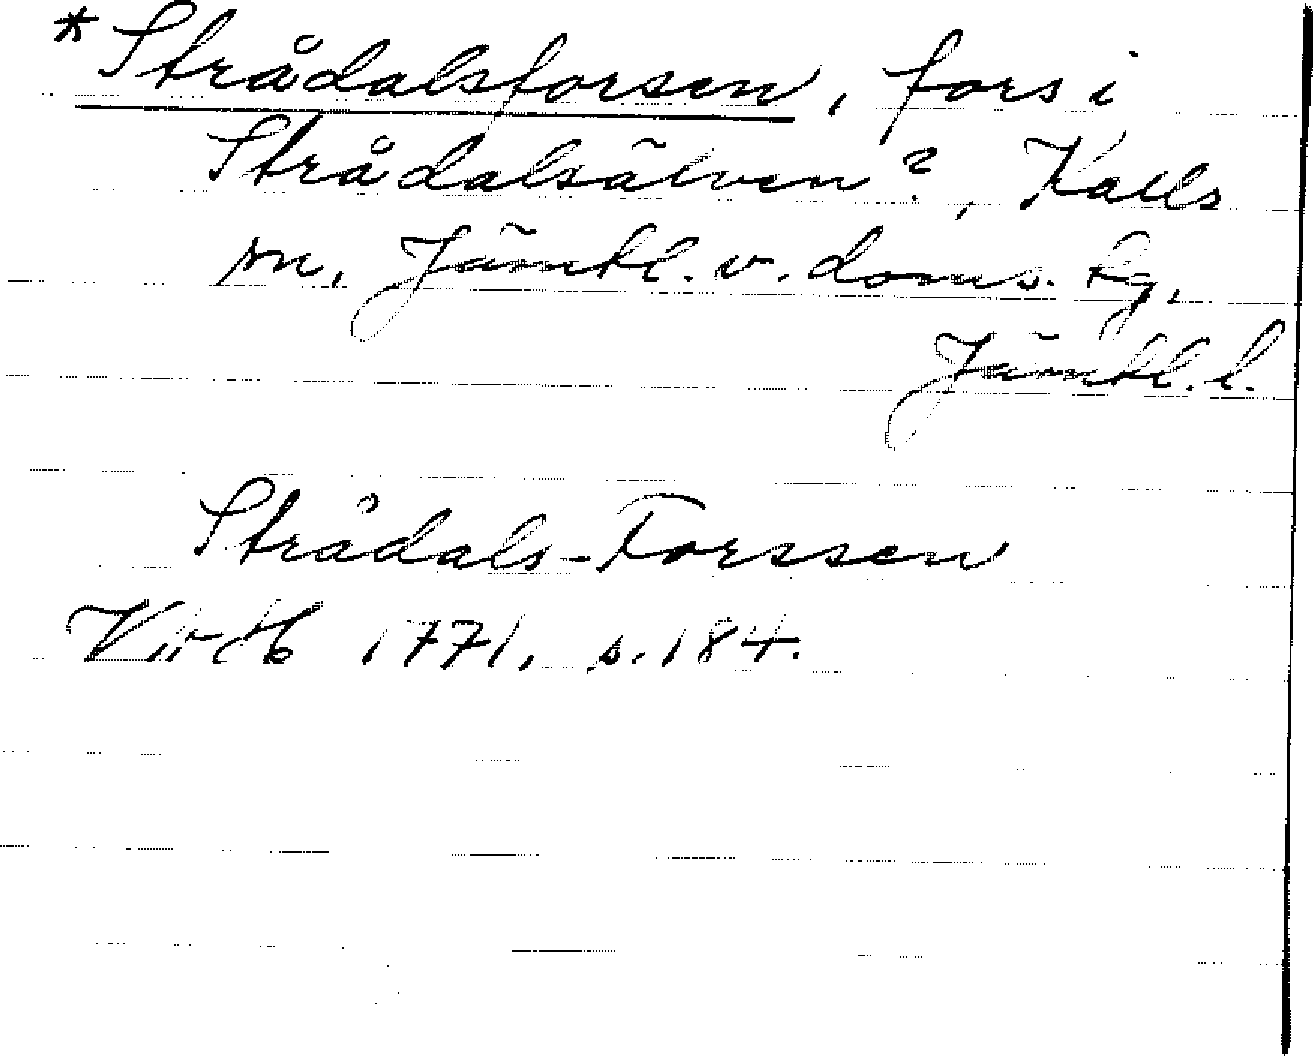 *Strådalsforsen, fors i
Strådalsälven?, Kalls
sn, Jämtl. v. doms. tg,
Jämtl. l.
Strådals-Forssen
1771, s. 184.